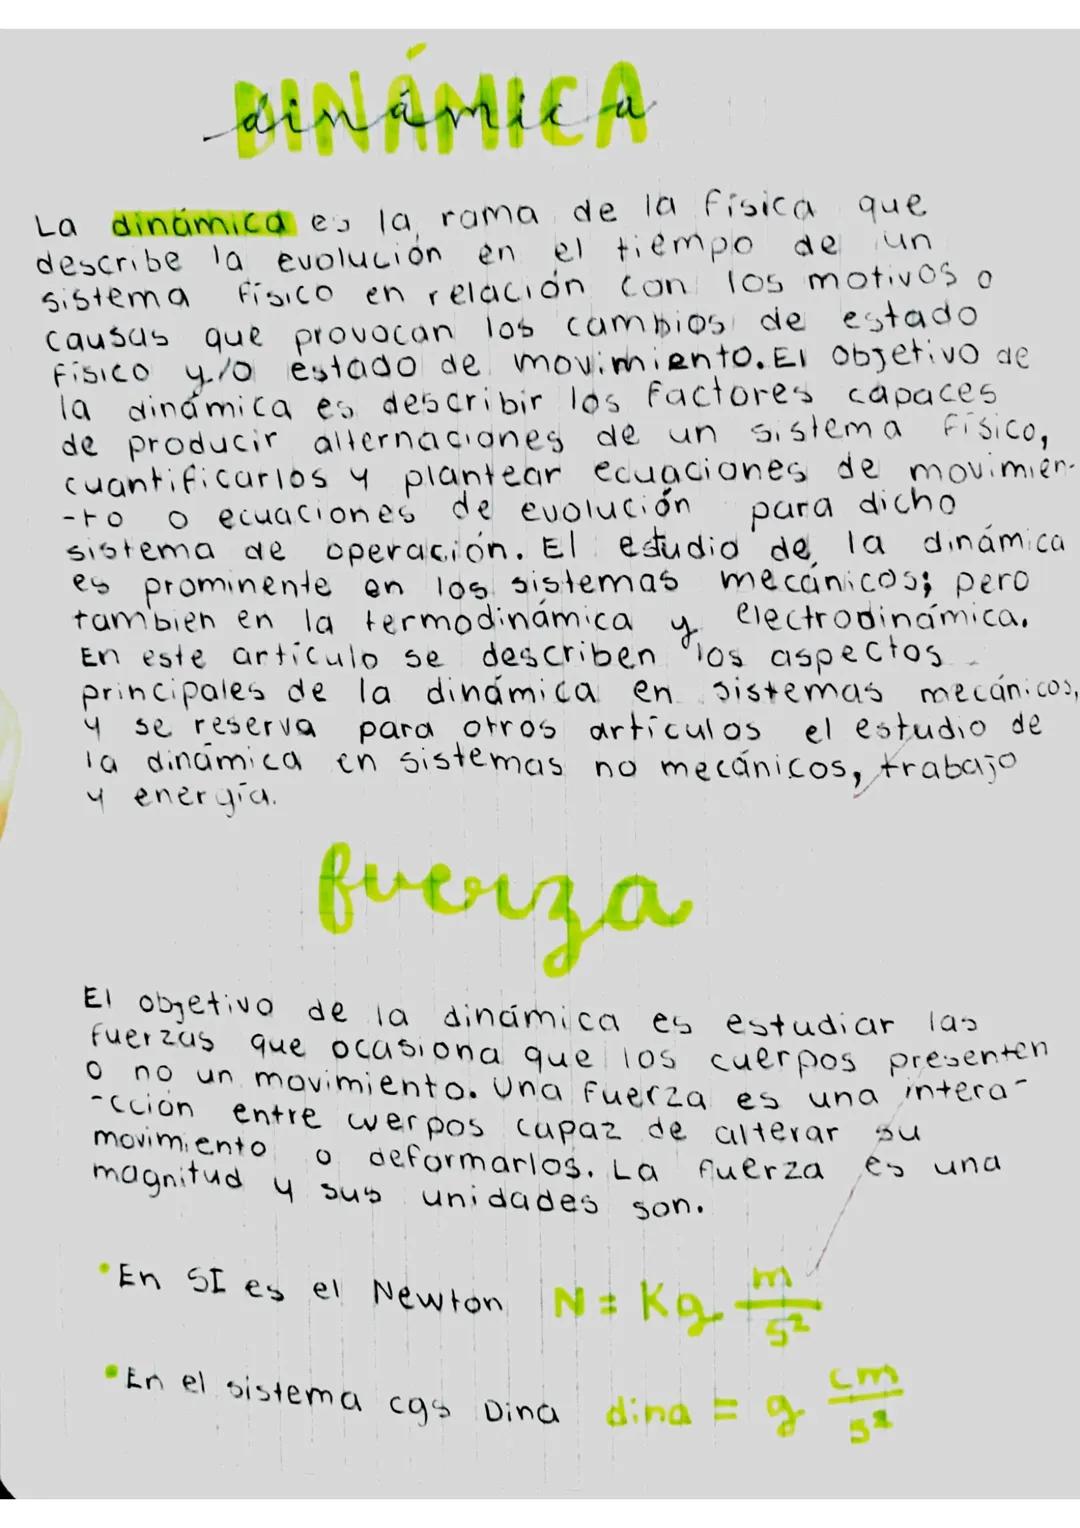 DINÁMICA
dinámica
La dinámica es la rama de la física que
describe la evolución en el tiempo de un
sistema físico en relación con los motivos o
causas que provocan los cambios de estado
físico y/o estado de movimiento. El objetivo de
la dinámica es describir los factores capaces
de producir alternaciones de un sistema físico,
cuantificarlos y plantear ecuaciones de movimien-
-to o ecuaciones de evolución para dicho
sistema de operación. El estudio de la dinámica
es prominente en los sistemas mecánicos; pero
tambien en la termodinámica y electrodinámica.
En este artículo se describen los aspectos
principales de la dinámica en sistemas mecánicos,
y se reserva para otros artículos el estudio de
la dinámica en sistemas no mecánicos, trabajo
y energía.
fuerza
El objetivo de la dinámica es estudiar las
fuerzas que ocasiona que los cuerpos presenten
o no un movimiento. Una fuerza es una intera-
-cción entre cuerpos capaz de alterar su
movimiento o deformarlos. La fuerza es una
magnitud y sus unidades son.
•En SI es el Newton N = Kg m/s²
•En el sistema cgs Dina dina = g cm/s²